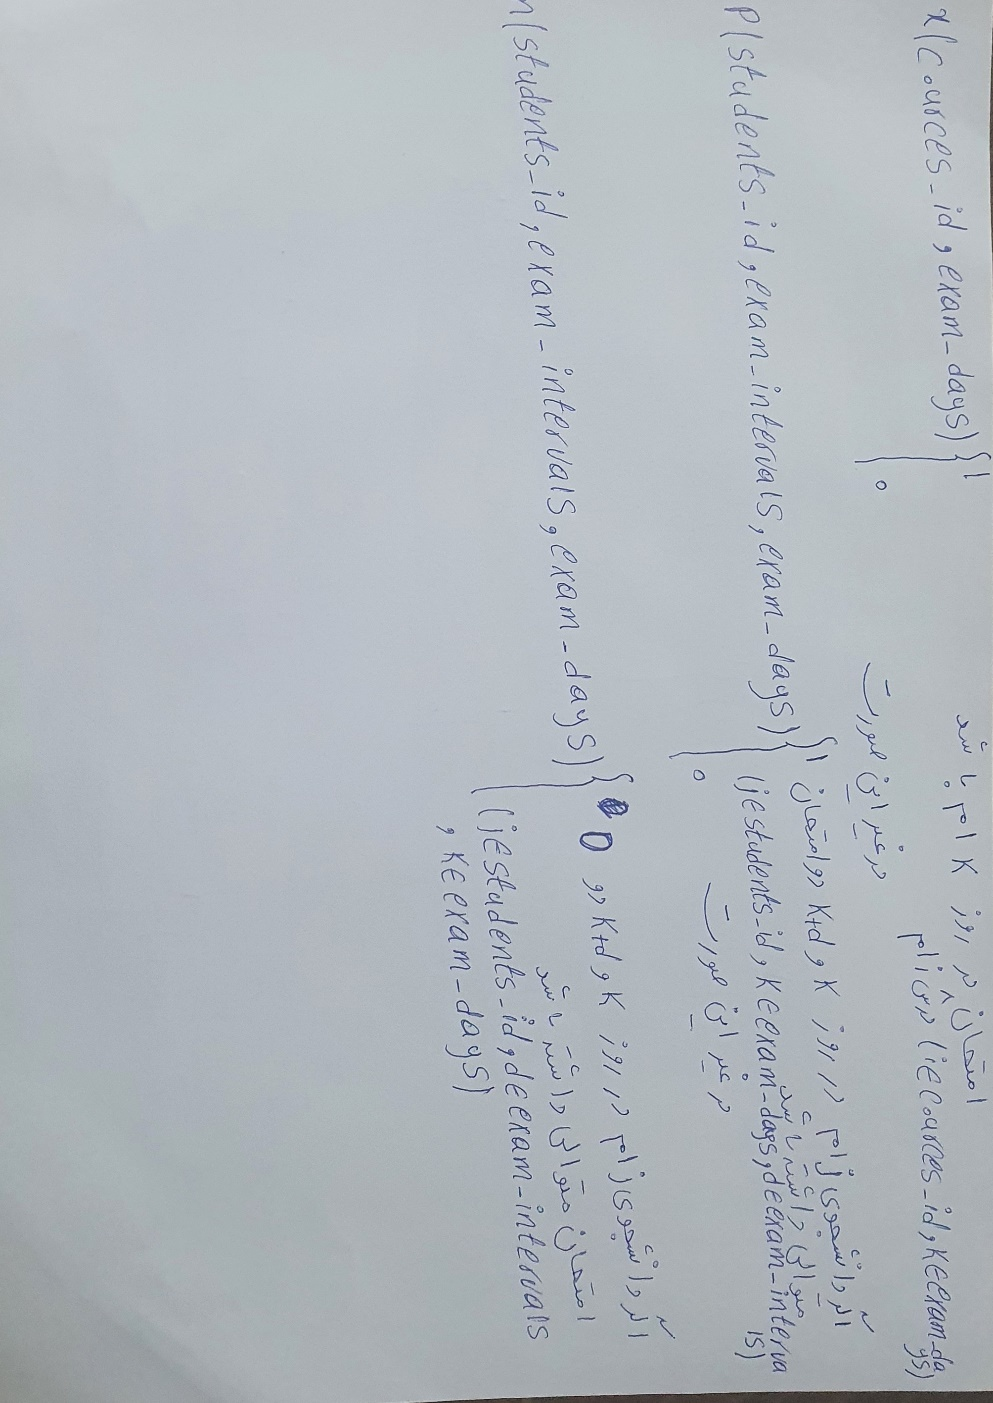 x(cources_id, exam_days) { 1 امتحان درس i ام در روز K ام باشد (i∈cources_id, K∈exam_days)
0 در غیر این صورت
P(students_id, exam_intervals, exam_days) { 1 اگر دانشجوی j ام در روز K و K+d دو امتحان متوالی داشته باشد
(j∈students_id, K∈exam_days, d∈exam_intervals)
0 در غیر این صورت
n(students_id, exam_intervals, exam_days) { 0 اگر دانشجوی j ام در روز K و K+d دو امتحان متوالی داشته باشد
(j∈students_id, d∈exam_intervals
, K∈exam_days)